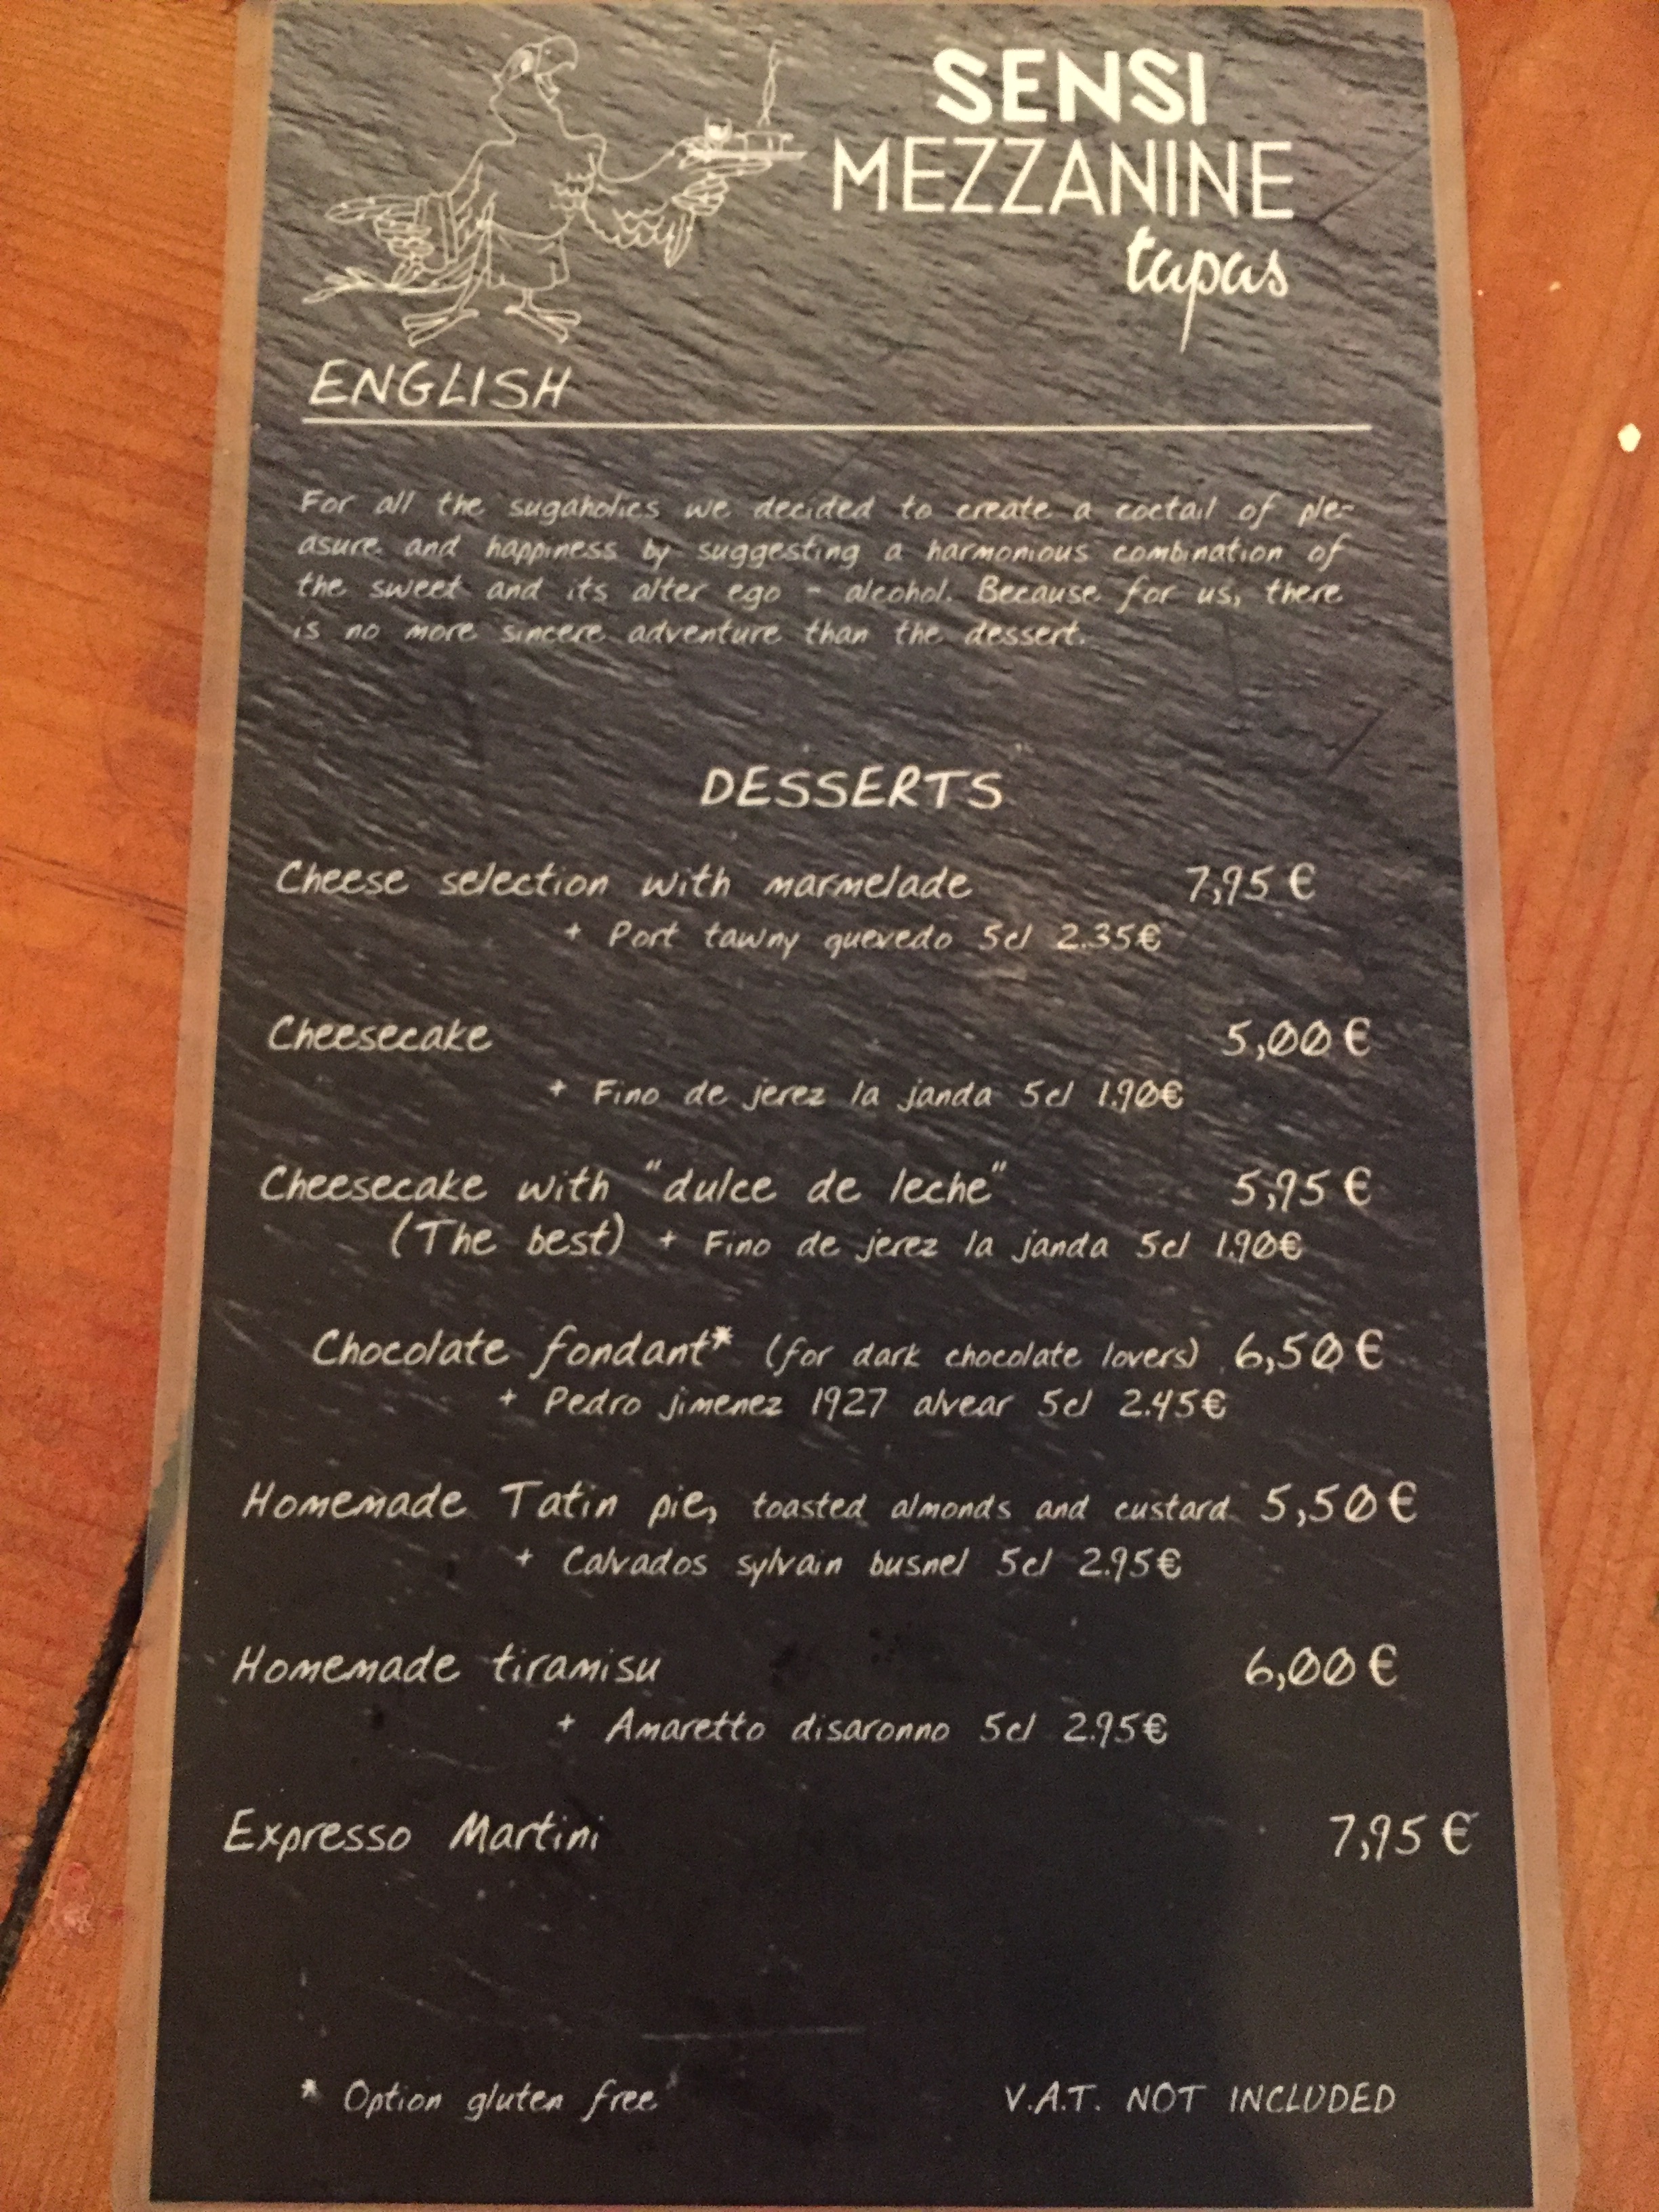 SENSI
MEZZANINE
tapas
ENGLISH
For all the sugaholics we decided to create a coctail of ple-
asure and happiness by suggesting a harmonious combination of
the sweet and its alter ego - alcohol. Because for us, there
is no more sincere adventure than the dessert.
DESSERTS
Cheese selection with marmelade 7,95 €
+ Port tawny quevedo 5cl 2.35€
Cheesecake 5,00 €
+ Fino de jerez la janda 5cl 1.90€
Cheesecake with "dulce de leche" 5,95 €
(The best) + Fino de jerez la janda 5cl 1.90€
Chocolate fondant* (for dark chocolate lovers) 6,50 €
+ Pedro jimenez 1927 alvear 5cl 2.45€
Homemade Tatin pie, toasted almonds and custard 5,50 €
+ Calvados sylvain busnel 5cl 2.95€
Homemade tiramisu 6,00 €
+ Amaretto disaronno 5cl 2.95€
Expresso Martini 7,95 €
* Option gluten free V.A.T. NOT INCLUDED